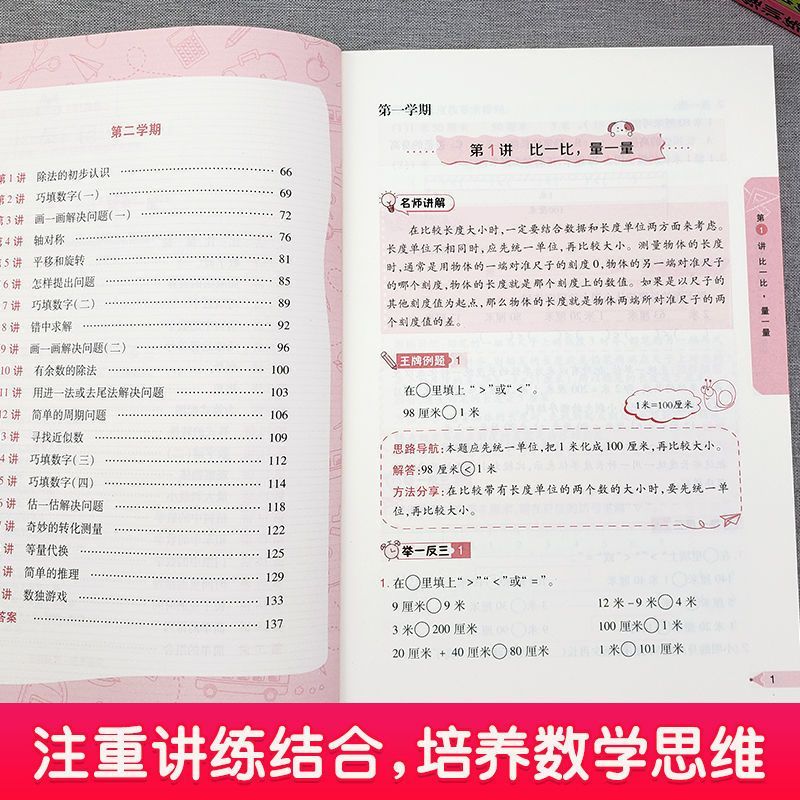 第二学期
第1讲 除法的初步认识 66
第2讲 巧填数字(一) 69
第3讲 画一画解决问题(一) 72
第4讲 轴对称 76
第5讲 平移和旋转 81
第6讲 怎样提出问题 85
第7讲 巧填数字(二) 89
8讲 错中求解 92
9讲 画一画解决问题(二) 96
10讲 有余数的除法 100
11讲 用进一法或去尾法解决问题 103
12讲 简单的周期问题 106
3讲 寻找近似数 109
4讲 巧填数字(三) 112
5讲 巧填数字(四) 114
6讲 估一估解决问题 118
7讲 奇妙的转化测量 122
讲 等量代换 125
讲 简单的推理 129
讲 数独游戏 133
答案 137
第一学期
第1讲 比一比，量一量
名师讲解
在比较长度大小时,一定要结合数据和长度单位两方面来考虑。
长度单位不相同时,应先统一单位,再比较大小。测量物体的长度
时,通常是用物体的一端对准尺子的刻度0,物体的另一端对准尺子
的哪个刻度,物体的长度就是那个刻度上的数值。如果是以尺子的
其他刻度值为起点,那么物体的长度就是物体两端所对准尺子的两
个刻度值的差。
王牌例题 1
在○里填上“>”或“<”。
98厘米○1米
1米=100厘米
思路导航:本题应先统一单位,把1米化成100厘米,再比较大小。
解答:98厘米<1米
方法分享:在比较带有长度单位的两个数的大小时,要先统一单
位,再比较大小。
举一反三 1
1. 在○里填上“>”“<”或“=”。
9厘米○9米 12米-9米○4米
3米○200厘米 100厘米○1米
20厘米+40厘米○80厘米 1米○101厘米
第1讲 比一比·量一量
1
注重讲练结合,培养数学思维